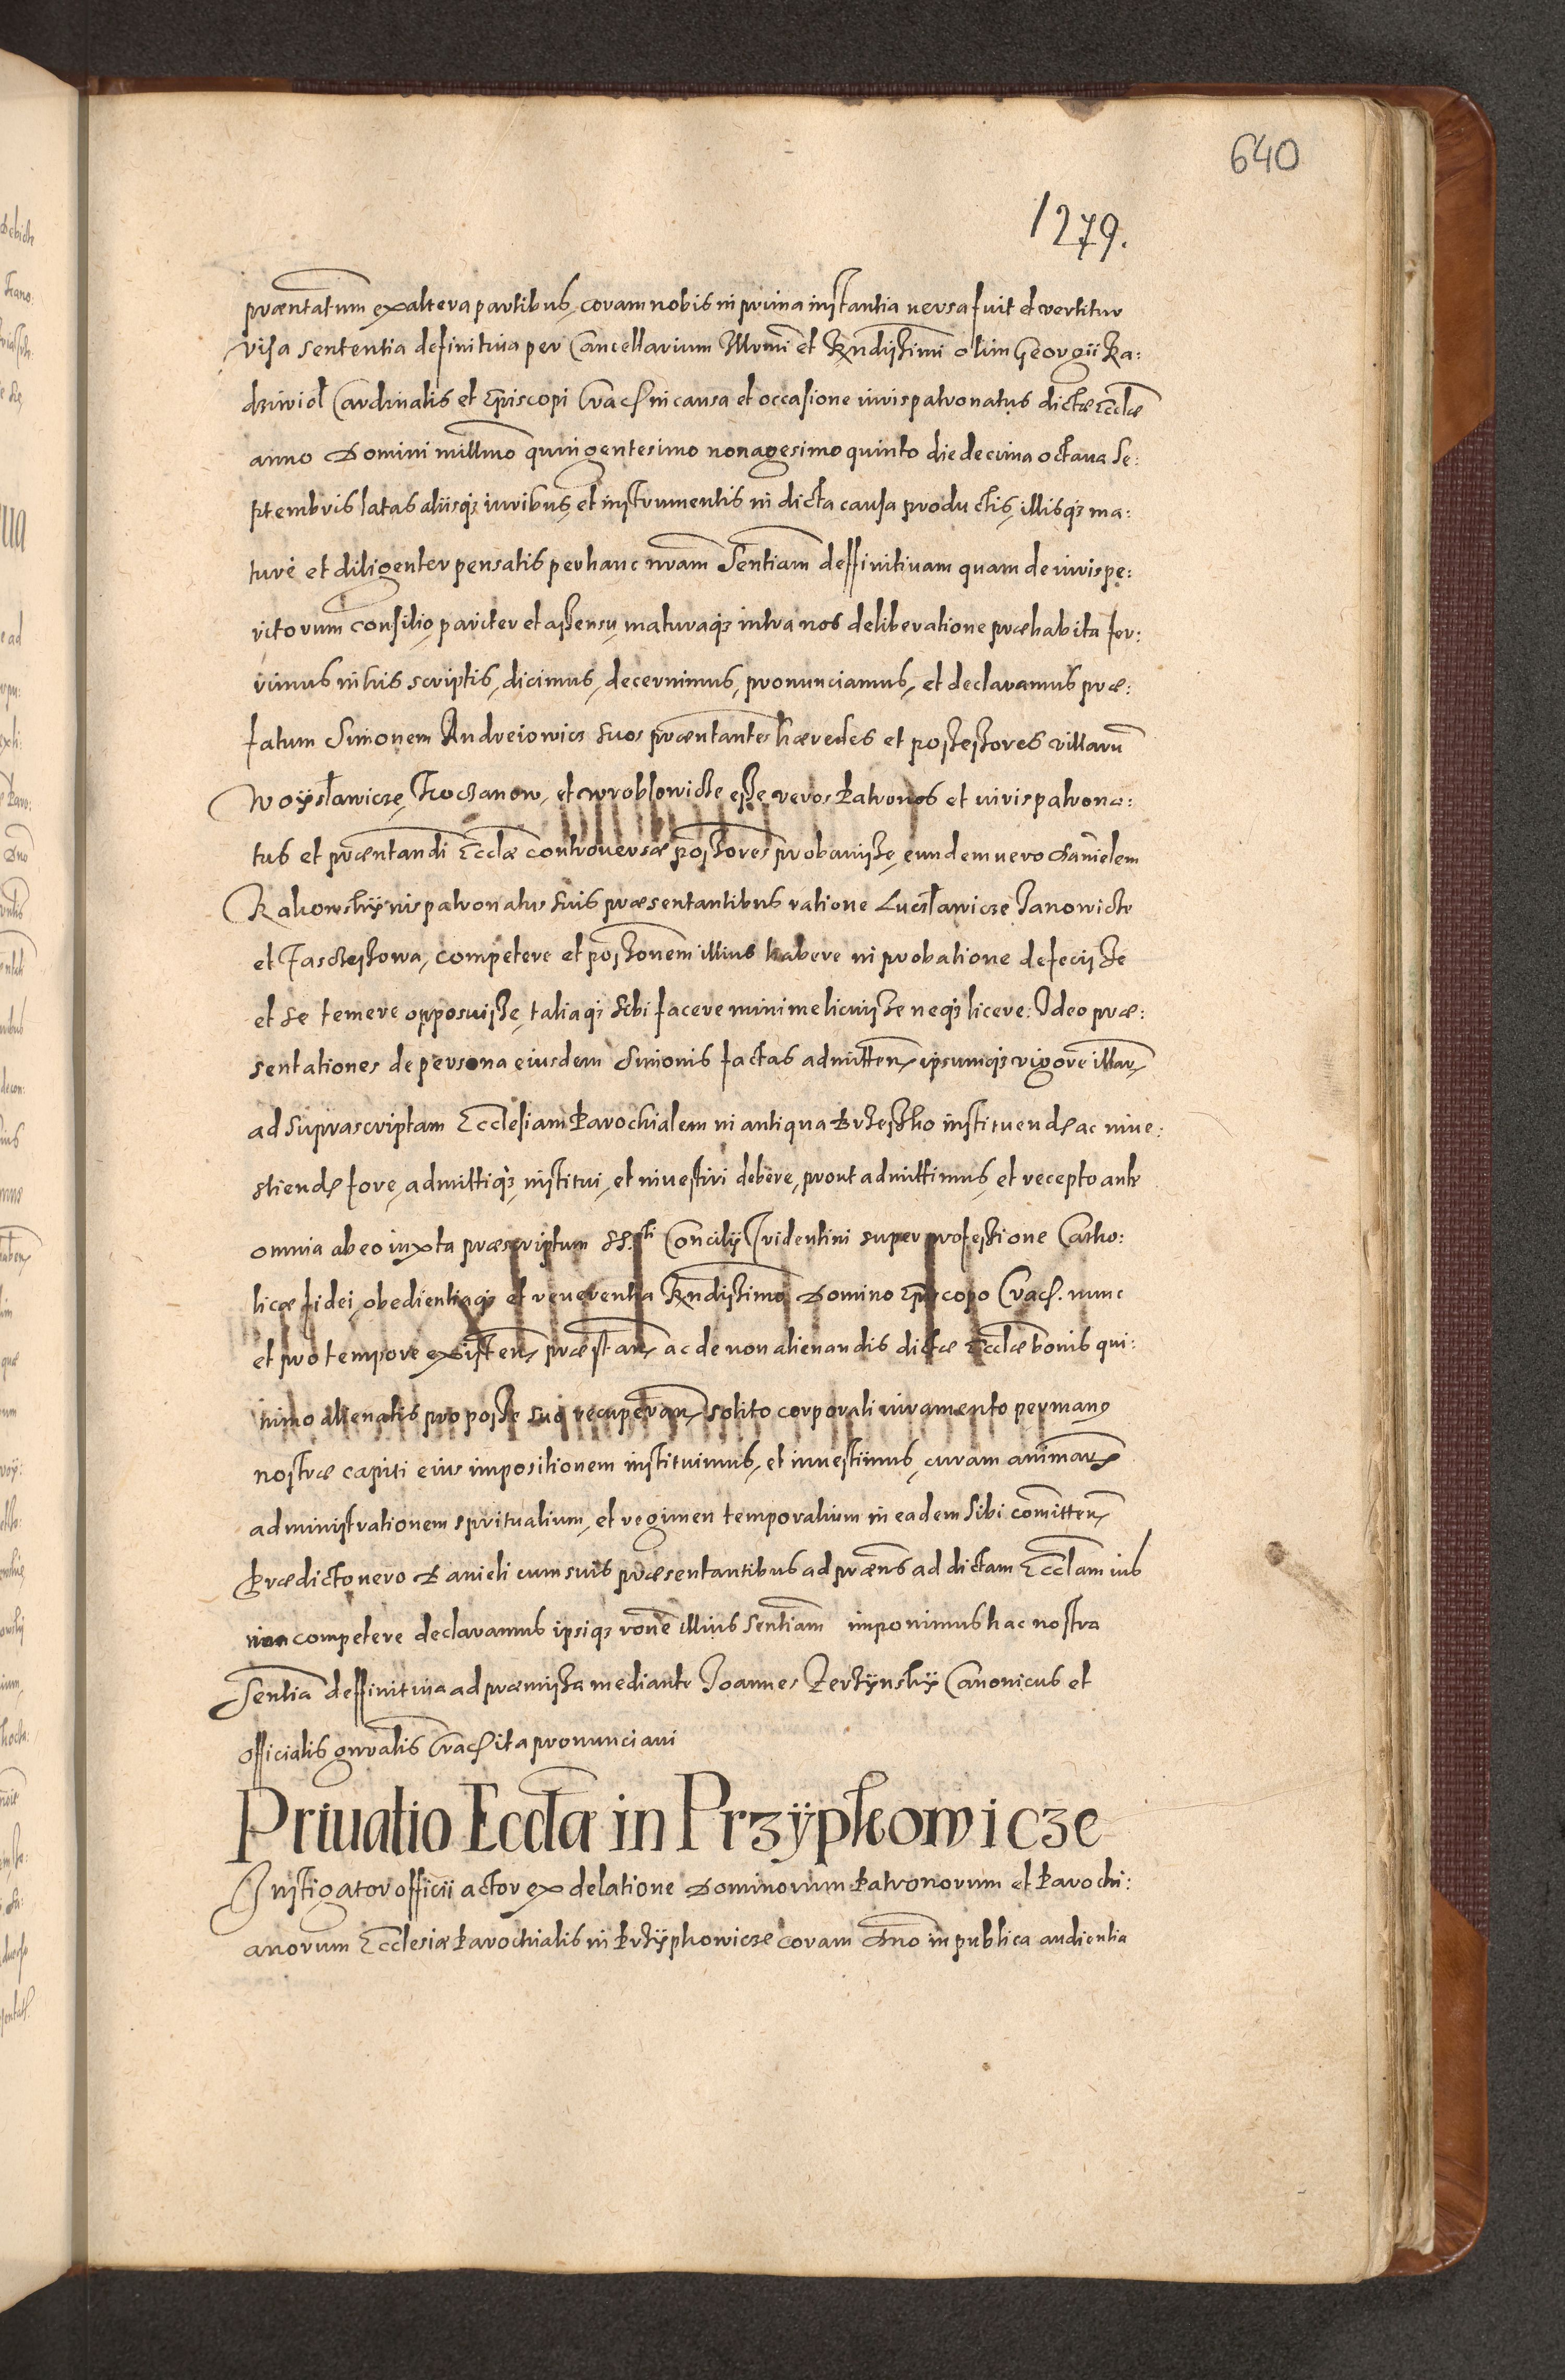 640
1279.
præntatum ex altera partibus, coram nobis in prima instantia uersa fuit et vertitur
visa sententia definitiua per Cancellarium Illrmi et Rndissimi olim Georgii Ra:
dziwiol Cardinalis et Episcopi Crac in causa et occasione iuris patronatus dictæ Ecclæ
anno Domini millmo quingentesimo nonagesimo quinto die decima octaua Se:
ptembris latas aliisq; iuribus, et instrumentis in dicta causa productis, illisq; ma:
turè et diligenter pensatis per hanc nram Sentiam deffinitiuam quam de iurispe:
ritorum consilio, pariter et assensu, maturaq; intra nos deliberatione præhabita fer:
rimus in his scriptis, dicimus, decernimus, pronunciamus, et declaramus præ:
fatum Simonem Andreiowicz suos præntantes hæredes et possessores villaru
Woÿsławicze, Troczanow, et Wroblowicze esse veros Patronos et iuris patrona:
tus et præntandi Ecclæ controuersæ possores probauisse, eundem uero Danielem
Rakowskÿ ius patronatus suis præsentantibus ratione Lucsławicze Janowicze
et Fasciszowa, competere et possonem illius habere in probatione defecisse
et se temere opposuisse, taliaq; sibi facere minime licuisse neq; licere: Ideo præ:
sentationes de persona eiusdem Simonis factas admitten ipsumq; vigore illar
ad suprascriptam Ecclesiam Parochialem in antiqua Brzesko instituend ac inue:
stiend fore, admittiq; institui, et inuestiri debere, prout admittimus, et recepto ante
omnia ab eo iuxta præscriptum SS.sti Concilÿ Tridentini super professione Catho:
licæ fidei, obedientiaq; et reuerentia Rndissimo Domino Episcopo Crac. nunc
et pro tempore existen præstan ac de non alienandis dictæ Ecclæ bonis qui:
nimo alienatis pro posse suo recuperan solito corporali iuramento per man9
nostræ capiti eius impositionem instituimus, et inuestimus, curam animar
administrationem spritualium, et regimen temporalium in eadem sibi comitten
Prædicto uero Danieli cum suis præsentantibus ad præns ad dictam Ecclam ius
non competere declaramus ipsiq; rone illius Sentiam imponimus hac nostra
Sentia deffinitiua ad præmissa mediante Joannes Zerzÿnskÿ Canonicus et
officialis gnralis Crac ita pronunciaui
Priuatio Ecclæ in Przÿpkowicze
Instigator officii actor ex delatione Dominorum Patronorum et Parochi:
anorum Ecclesiæ Parochialis in Przÿpkowicze coram Dno in publica audientia